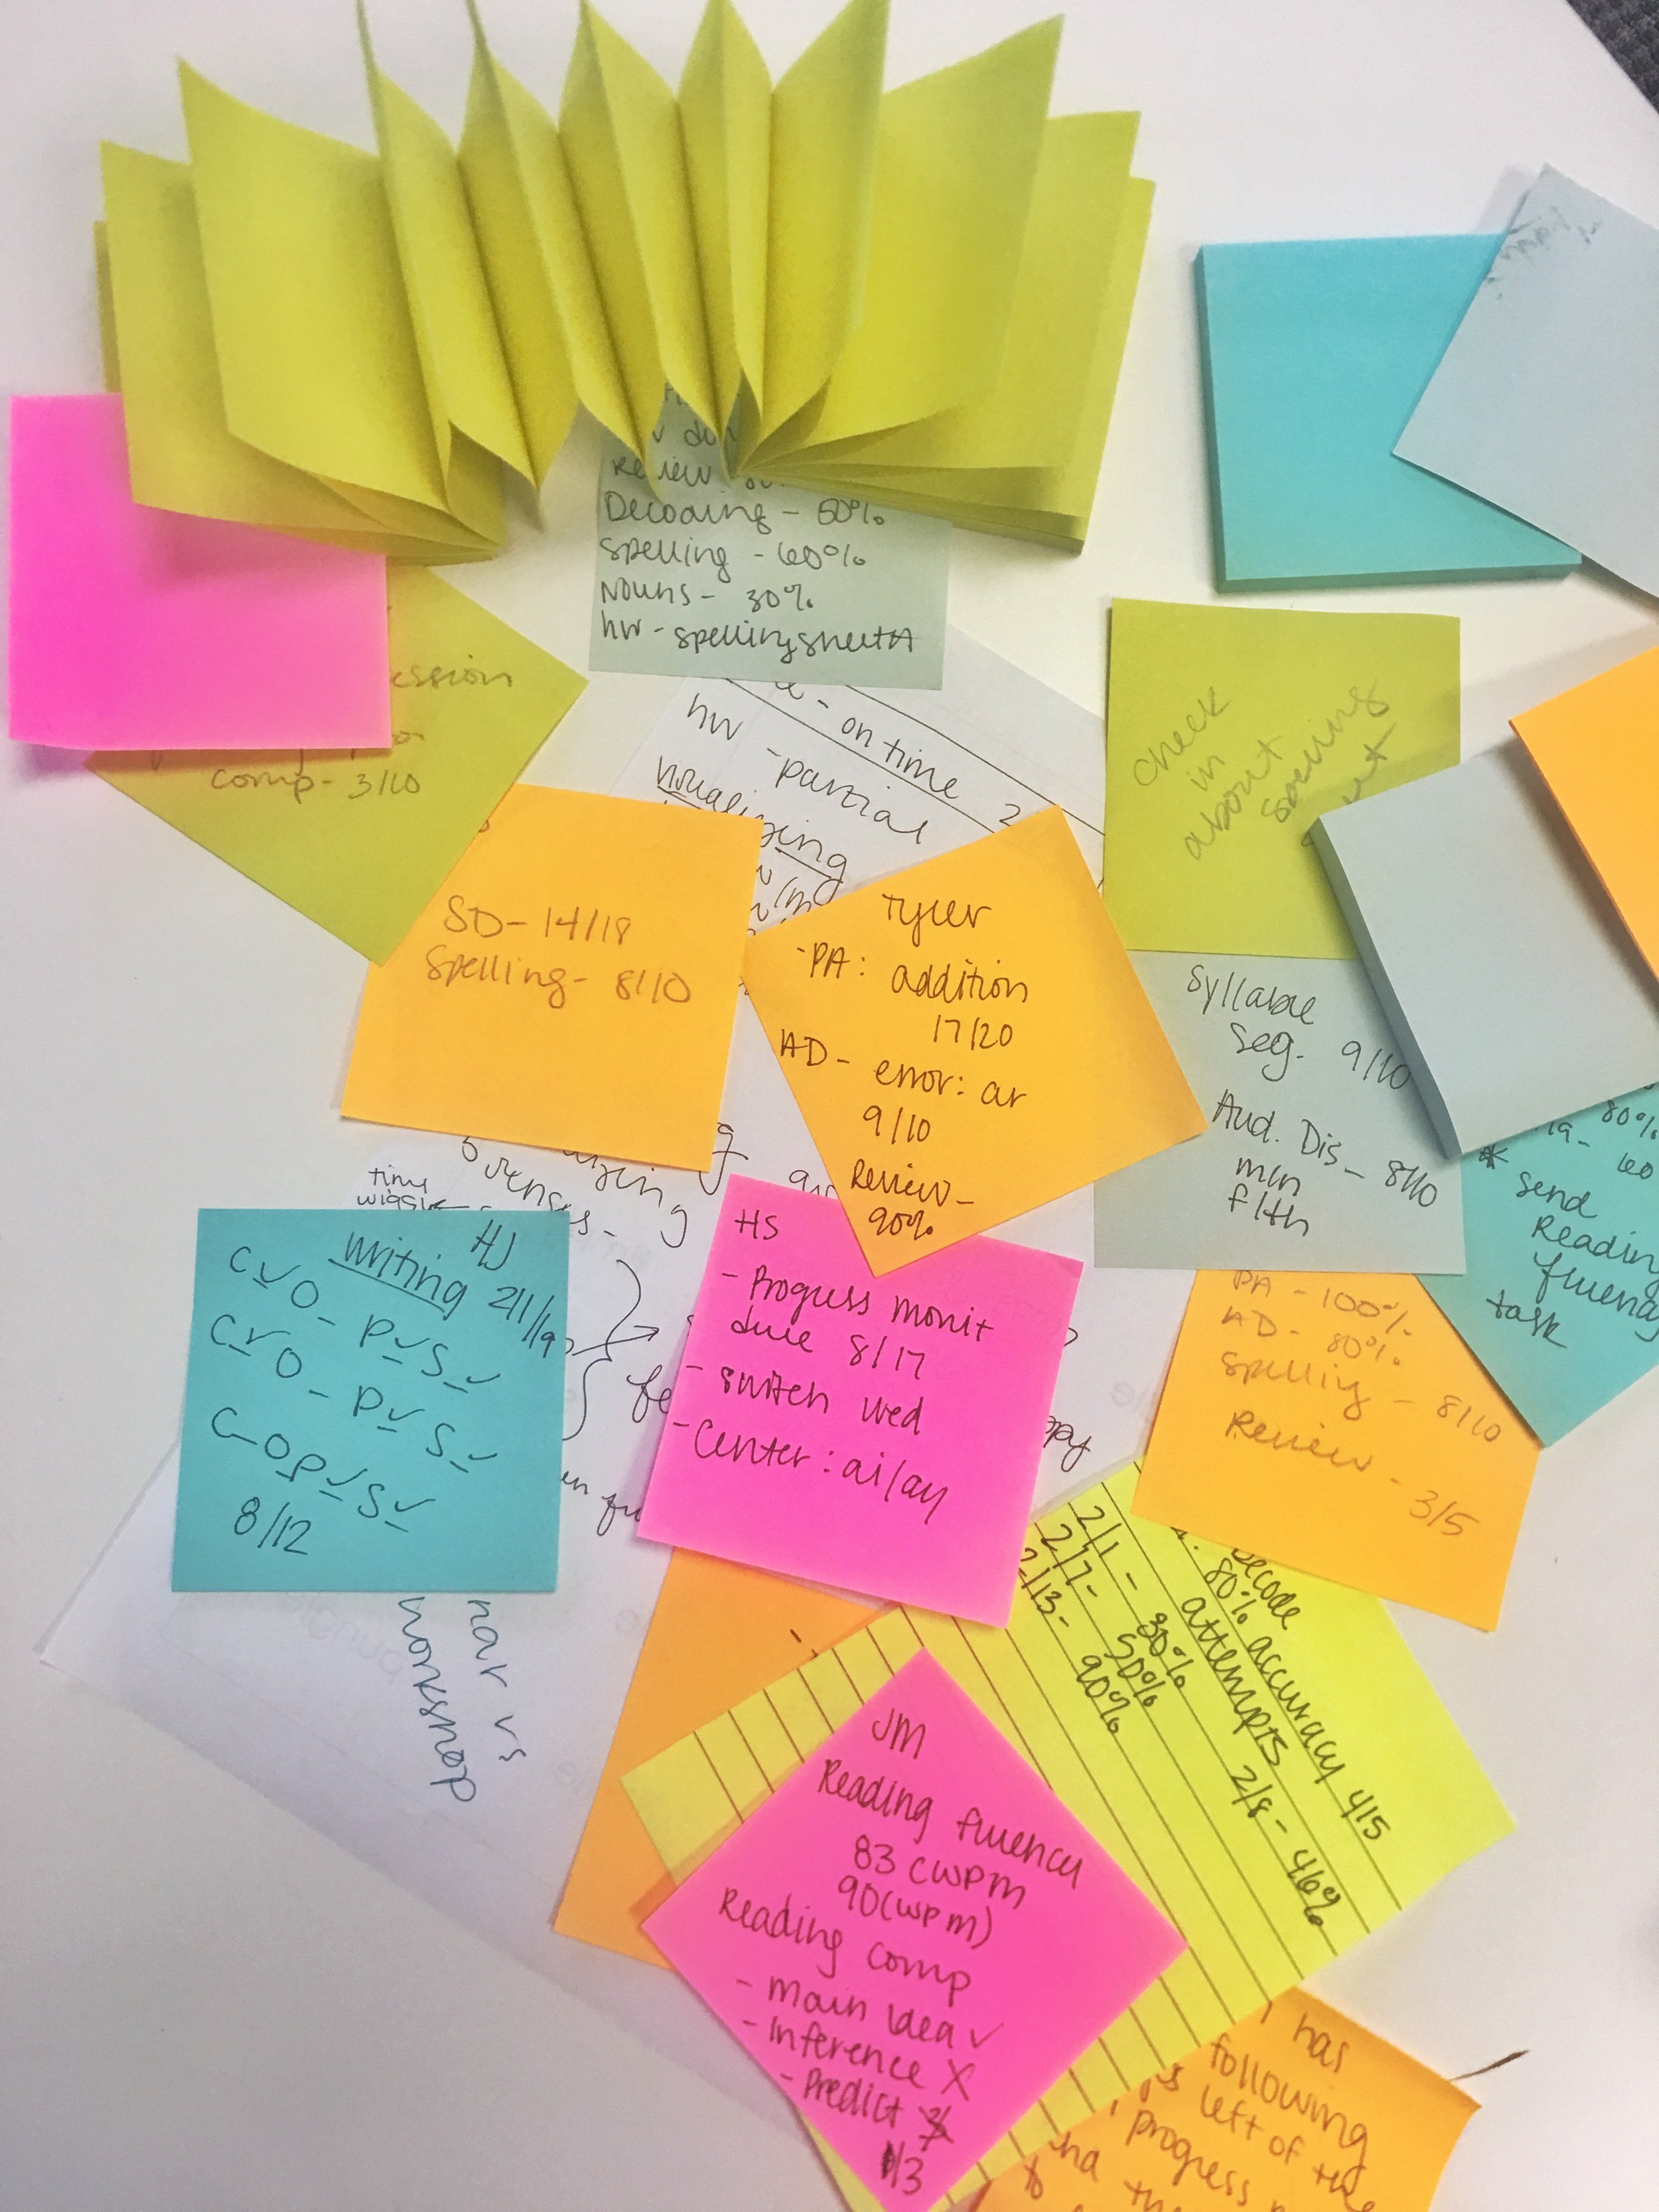 Review
Decoding - 60%
spelling - 60%
Nouns - 30%
hw - spelling sheet A
ession
comp - 3/10
- on time
hw - partial
visualizing
check
in
about
spelling
SD - 14/18
Spelling - 8/10
Tyler
- PA: addition
17/20
AD - error: ar
9/10
Review -
90%
Syllable
Seg. 9/10
Aud. Dis - 8/10
m/n
f/th
80%
* send
Reading
fluency
task
time
wiggle
HJ
Writing 2/1/19
C✓ O - P✓ S✓
C✓ O - P✓ S✓
C - O P✓ S✓
8/12
HS
- Progress monit
due 8/17
- switch wed
- Center: ai/ay
PA - 100%
AD - 80%
Spelling - 8/10
Review - 3/5
decode
80% accuracy 4/5
attempts 2/8 - 46%
2/1 - 30%
2/7 - 50%
2/13 - 90%
nar vs
workshop
JM
Reading fluency
83 cwpm
90 (wpm)
Reading comp
- main idea ✓
- Inference X
- Predict
1/3
has
following
left of the
progress